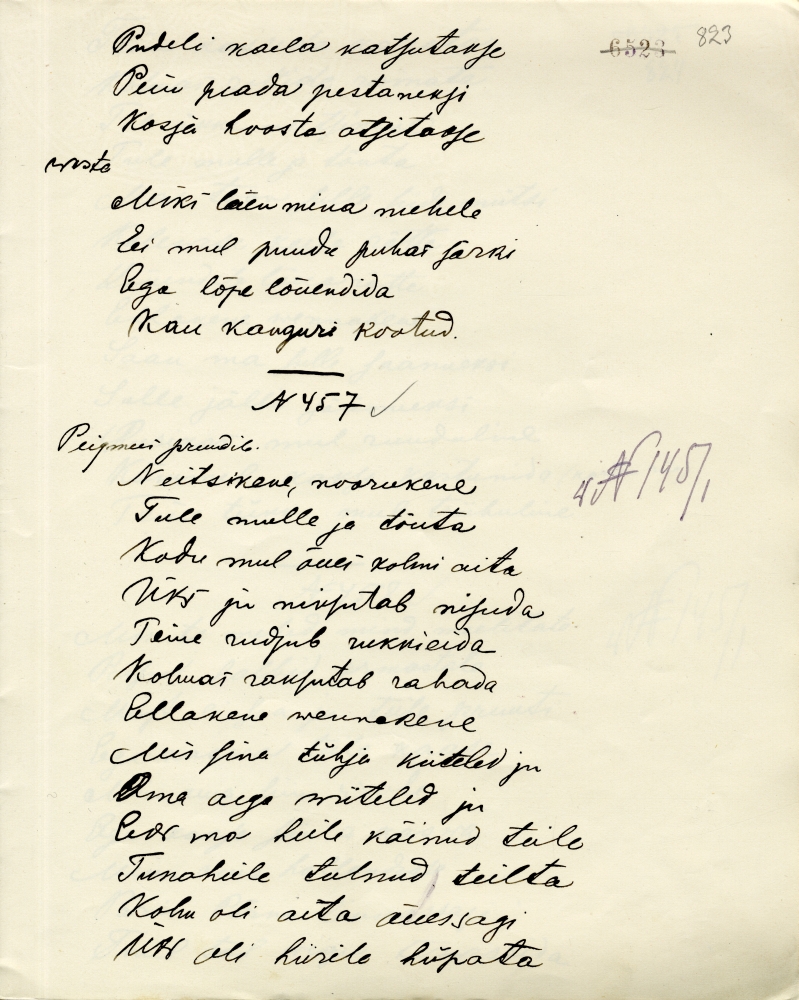 6523 823
Pudeli kaela katsutakse
Peiu peada pestaneksi
Kosja hoosta otsitakse
wasta
Miks läen mina mehele
Ei mul puudu puhas särki
Ega lõpe lõuendida
Kau kanguri kootud.
N 457 ✓
Peigmees preudib.
Neitsikene, noorukene
Tule mulle ja tõuta
N 1457
Kodu mul õues kolmi aita
Üks ju niksutab nisuda
Teine rudjub rukkieida
Kolmas raksutab rahada
Ellakene wennakene
Mis sina tühja kiiteled ju
Oma aega wiiteled ju
Eks ma heile käinud teile
Tunaheile tulnud teilta
Kolm oli aita õuessagi
Üks oli hiirile hüpata